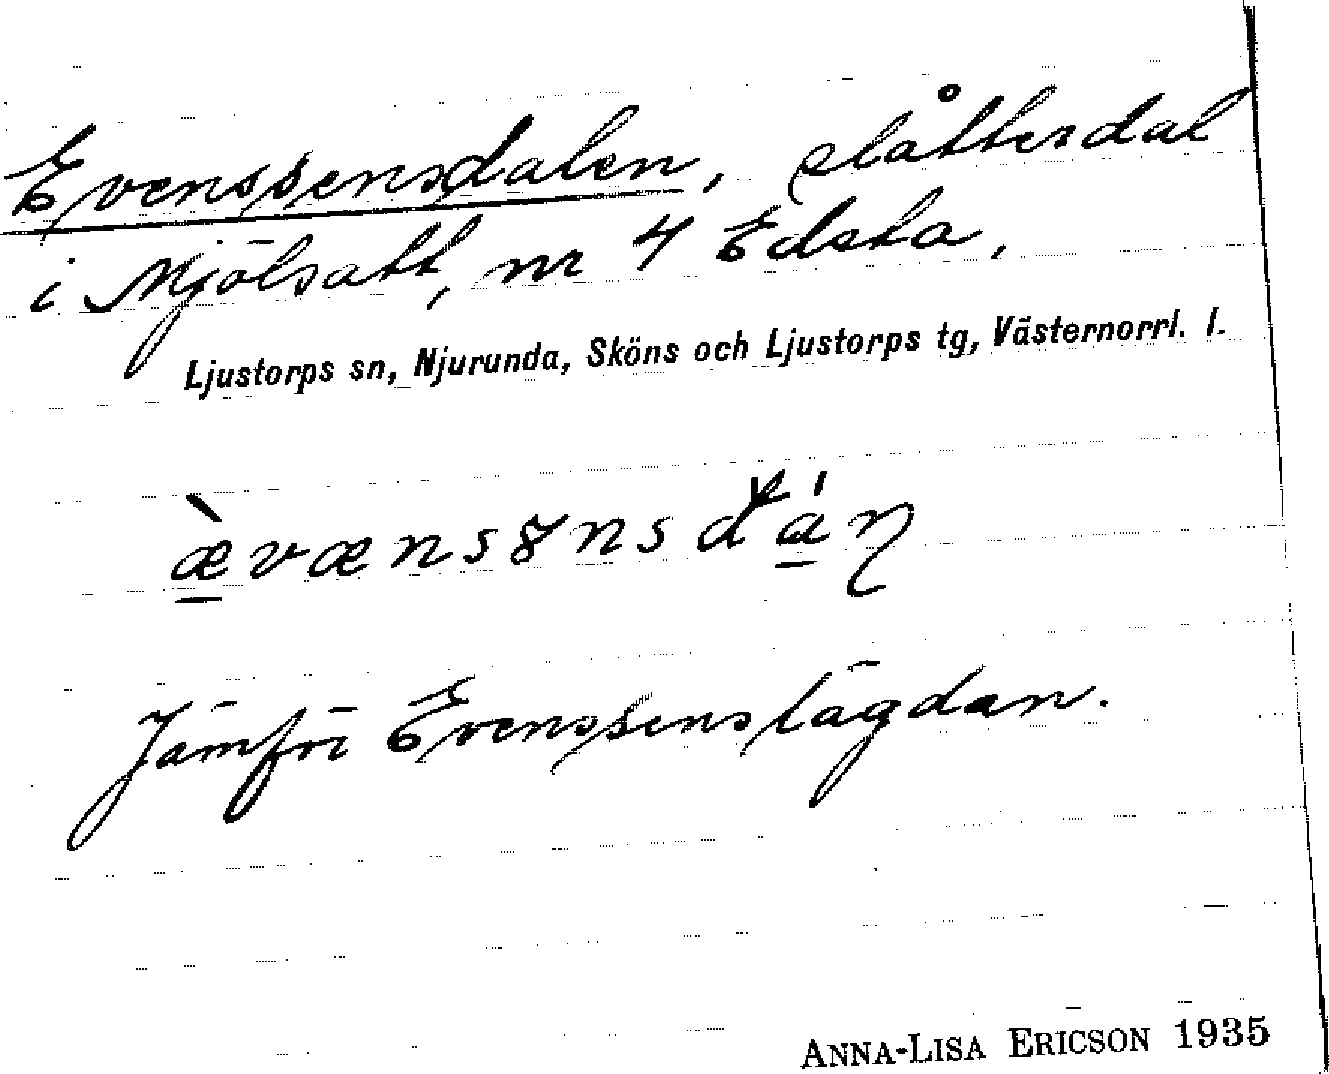 Evenssensdalen, slåtterdal
i Mjölsatt, nr 4 Edsta,
Ljustorps sn, Njurunda, Sköns och Ljustorps tg, Västernorrl. l.
Jämför Evenssenslägdan.
ANNA-LISA ERICSON 1935